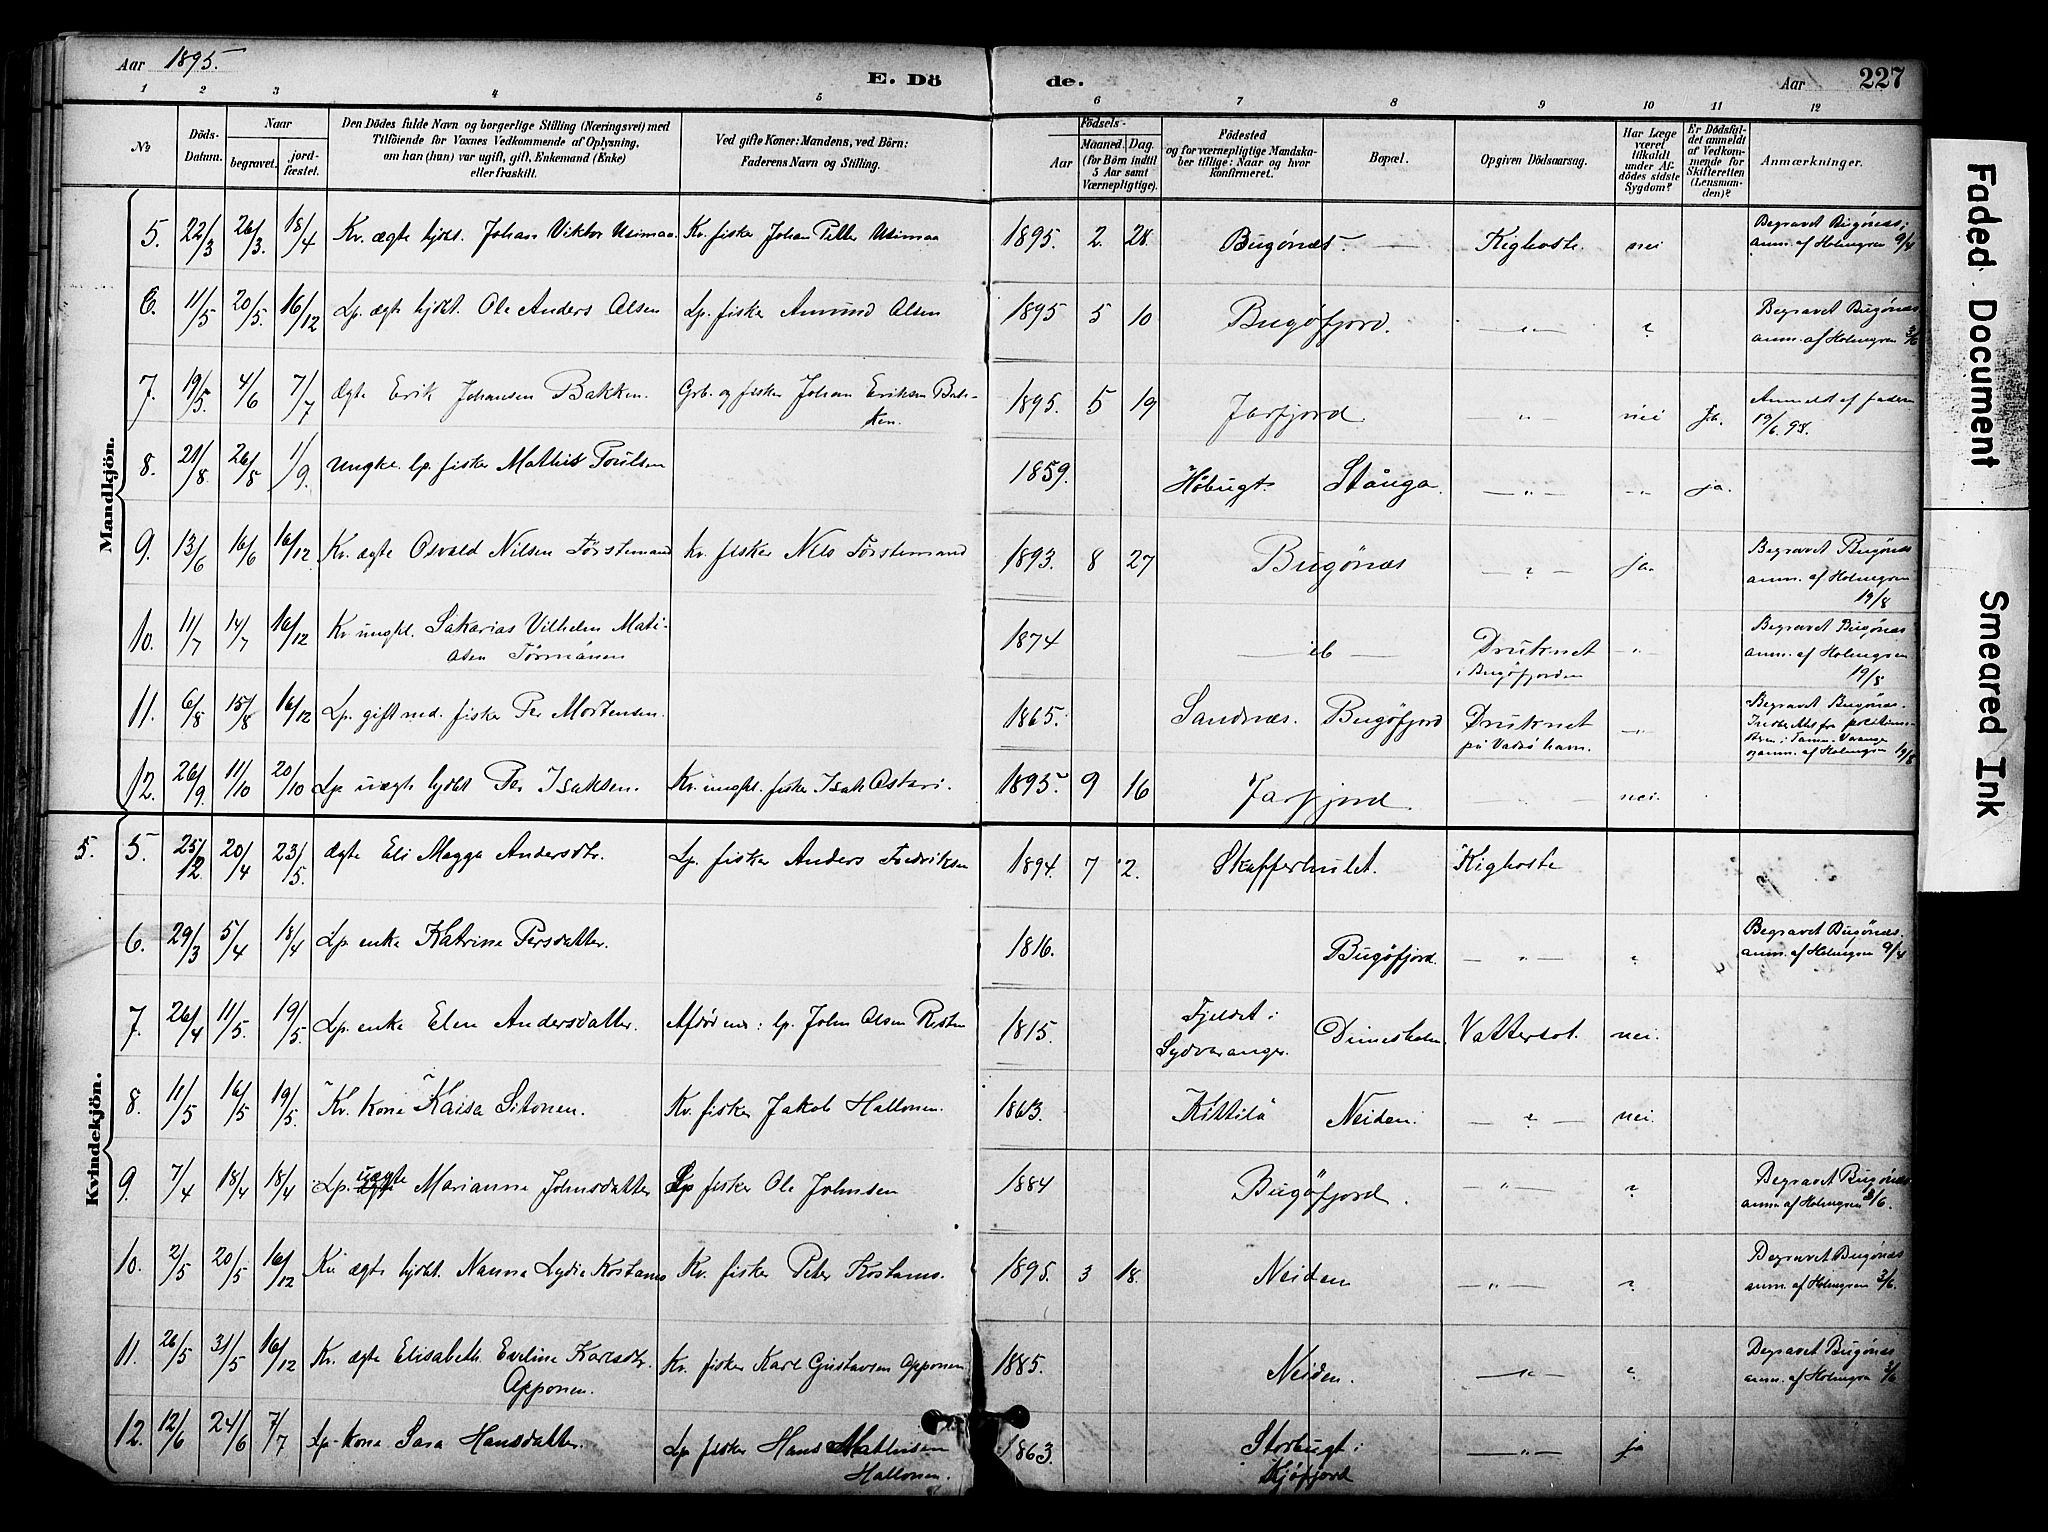 Aar 1895.
E. Dö de.
Aar 227
1 2 3 4 5 6 7 8 9 10 11 12
№
Döds-Datum.
Naar
begravet.
jord-fæstet.
Den Dödes fulde Navn og borgerlige Stilling (Næringsvei) med
Tilföiende for Voxnes Vedkommende af Oplysning,
om han (hun) var ugift, gift, Enkemand (Enke)
eller fraskilt.
Ved gifte Koner: Mandens, ved Börn:
Faderens Navn og Stilling.
Födsels-
Aar
Maaned. Dag.
(for Börn indtil
5 Aar samt
Værnepligtige).
Födested
og for værnepligtige Mandska-
ber tillige: Naar og hvor
konfirmeret.
Bopæl.
Opgiven Dödsaarsag.
Har Læge
været
tilkaldt
under Af-
dödes sidste
Sygdom?
Er Dödsfal-
det anmeldt
af Vedkom-
mende for
Skifteretten
(Lensman-
den)?
Anmærkninger.
Mandkjön.
5. 22/3 26/3. 18/4 Kv. ægte hjdbt. Johan Viktor Usimaa. Kv. fisker Johan Petter Usimaa 1895. 2. 28. Bugönæs. — Kighoste. nei Begravet Bugönæs;
anm. af Holmgren 9/4
6. 11/5 20/5. 16/12 Lp. ægte hjdbt. Ole Anders Olsen Lp. fisker Amund Olsen 1895 5 10 Bugöfjord. —"— " Begravet Bugönæs
anm. af Holmgren 3/6
7. 19/5. 4/6 7/7 Ægte Erik Johansen Bakken. Grb. og fisker Johan Eriksen Bak-
ken. 1895. 5 19 Jarfjord " nei ja. Anmeldt af faderen
19/6. 95.
8. 21/8 26/8 1/9. Ungk. lp. fisker Mathis Poulsen 1859. Höbugt. Stånga. —"— —"— ja.
9. 13/6 16/6 16/12. Kv. ægte Osvald Nilsen Törstemand Kv. fisker Nils Törstemand 1893. 8 27 Bugönæs —"— ja. Begravet Bugönæs
anm. af Holmgren
19/8
10. 11/7 14/7 16/12 Kv. ungkl. Sakarias Vilhelm Mati-
asen Törmänen 1874 — ib — Druknet
i Bugöfjorden —"— Begravet Bugönæs
anm. af Holmgren
19/8
11. 6/8 15/8 16/12 Lp. gift md. fisker Per Mortensen. 1865. Sandnæs. Bugöfjord Druknet
på Vadsö havn. —"— Begravet Bugönæs.
anm. af Holmgren 19/8
12. 26/9. 11/10 20/10 Lp. uægte hjdbt Per Isaksen. Kv. ungkl. fisker Isak Ostari. 1895. 9 16 Jarfjord —"— nei.
Kvindekjön.
5. 5. 25/12. 20/4 23/5. Ægte Eli Magga Andersdtr. Lp. fisker Anders Fredriksen 1894. 7 2. Skafferhulet. Kighoste
6. 29/3 5/4 18/4 Lp. enke Katrine Persdatter. 1816. Bugöfjord. —"— " Begravet Bugönæs.
anm. af Holmgren 9/4
7. 26/4 11/5. 19/5. Lp. enke Elen Andersdatter. Afdöd md: lp. John Olsen Risten 1815. Fjeldet i
Sydvaranger. Vattersot. nei.
8. 11/5 16/5 19/5. Kv. kone Kaisa Sitonen. Kv. fisker Jakob Hallonen. 1863. Kittilä Neiden. —"— nei
9. 7/4 18/4 18/4 Lp. uægte Marianne Johnsdatter Lp fisker Ole Johnsen 1884 Bugöfjord. —"— " Begravet Bugönæs.
anm. af Holmgren 3/6.
10. 2/5 20/5 16/12 Kv ægte hjdbt. Nanna Lydia Kostamo Kv. fisker Peter Kostamo. 1895. 3 18. Neiden —"— " Begravet Bugönæs
anm. af Holmgren 3/6.
11. 26/5 31/5 16/12 Kv. ægte Elisabeth Eveline Karlsdtr.
Apponen. Kv. fisker Karl Gustavsen Apponen 1885. Neiden. —"— " Begravet Bugönæs
anm. af Holmgren 3/6
12. 12/6 24/6 7/7 Lp. kone Sara Hansdatter. Lp fisker Hans Mathisen
Hallonen. 1863. Storbugt i
Kjöfjord —"— ja
Faded Document
Smeared Ink